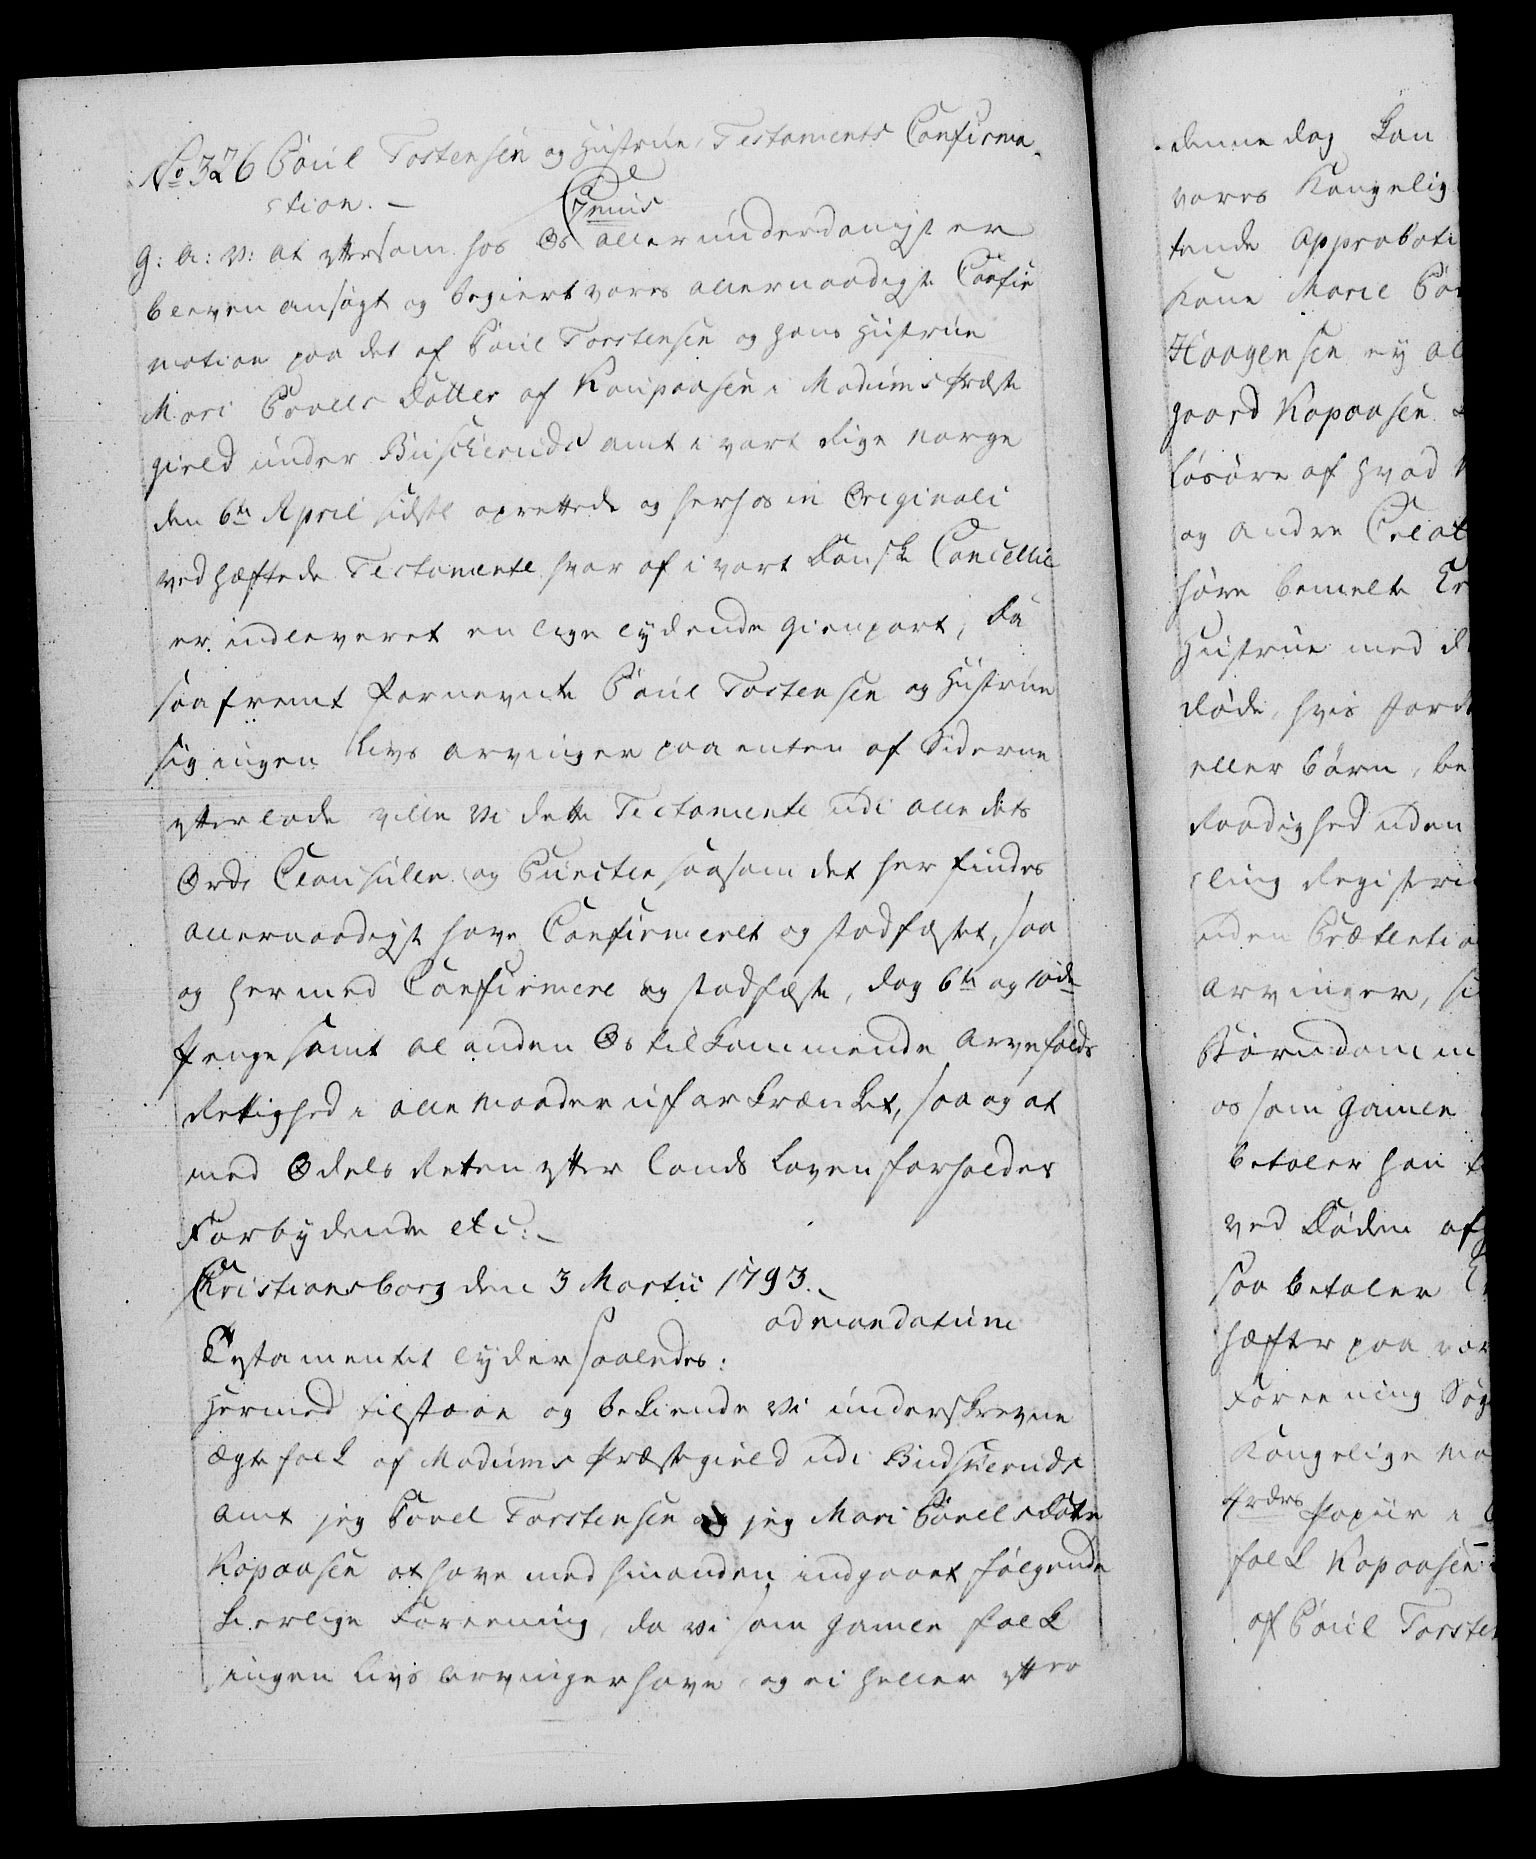 No 326 Poul Tostensen og Hustrue Testaments Confirma-
ction. — Gratis
G: A: V: at eftersom hos Os allerunderdanigst er
bleven ansøgt og begiert vores allernaadigste Confir
mation paa det af Poul Torstensen og hans Hustrue
Mari Povels Datter af Koupaasen i Modums Præste
gield under Buscheruds amt i vort Rige Norge
den 6te April sidstl oprettede og herhos in Originali
vedhæftede Testamente hvor af i vort Danske Cancellie
er indleveret en lige lydende Gienpart, Da
saafremt fornevnte Poul Tostensen og Hustrue
sig ingen Livs arvinger paa enten af Siderne
efterlade ville Vi dette Testamente udi alle dets
Ord, Clausuller og Puncter saasom det her findes
allernaadigst have Confirmeret og stadfæstet, saa
og hermed Confirmere og stadfæste, dog 6te og 10de
Penge samt al anden Os tilkommende Arvefalds
Rettighed i alle Maader uforkrænket, saa og at
med Odels Retten efter Lands Loven forholdes
Forbydende etc: —
Christiansborg den 3 Martii 1793. —
ad mandatum
Testamentet lyder saaledes:
Hermed tilstaae og bekiende Vi underskrevne
Ægtefolk af Modums Præstegield udi Budskeruds
Amt jeg Povel Torstensen og jeg Mari Povelsdater
Kopaasen at have med hinanden indgaaet følgende
kierlige Foreening, da vi som gamle folk
ingen Livs arvinger have, og ei heller efter
denne dag kan
vores Kongelig
tende Approbati
Kone Marie
Haagensen ey al
gaard Kopaasen
Løsøre af hvad
og andre Creat
høre bemelte
Hustrue med
døde, hvis
eller Børn, be
Raadighed uden
ling Registri
uden Prætentio
Arvinger,
Børndom
os som gamle
betaler han
ved Døden af
saa betaler
hæfter paa
Foreening
Kongelige Ma
4rdrs Papiir i
folk Kopaasen
af Poul Torsten